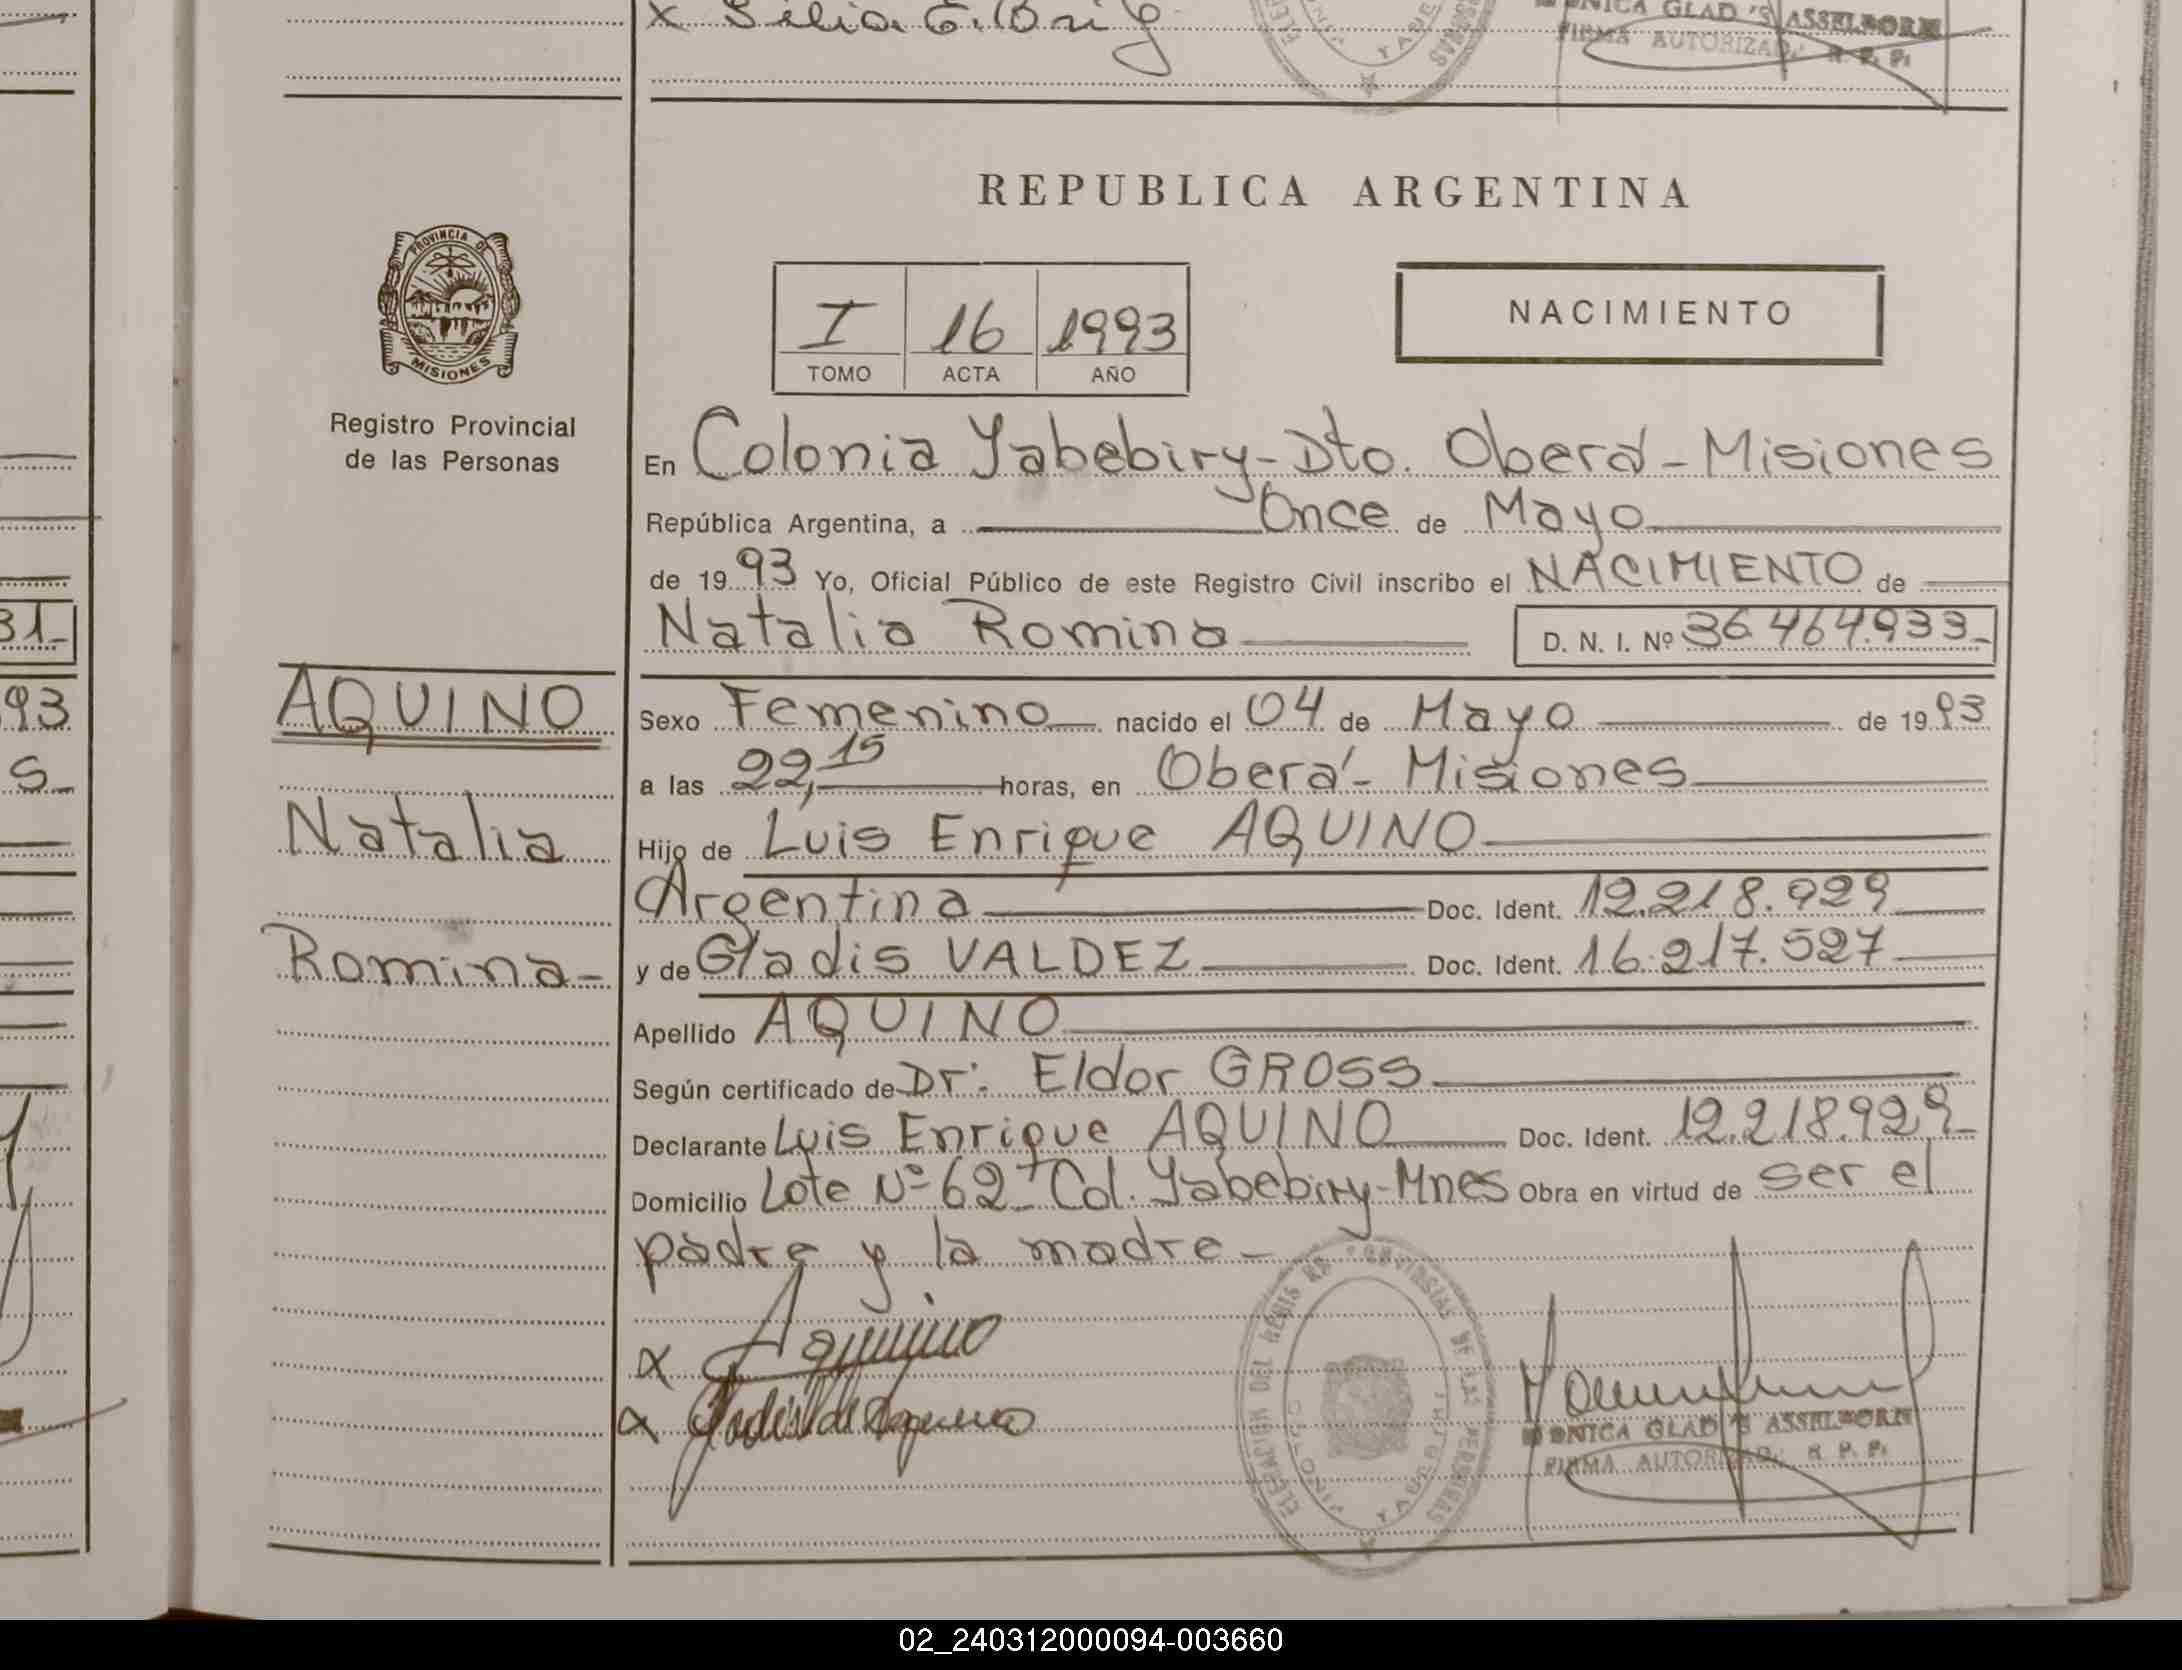 MONICA GLADYS ASSELBORN
FIRMA AUTORIZAD. R. P. P.
REPUBLICA ARGENTINA
PROVINCIA DE
MISIONES
I 16 1993
TOMO ACTA AÑO
NACIMIENTO
Registro Provincial
de las Personas
En Colonia Yabebiry - Dto. Oberá - Misiones
República Argentina, a Once de Mayo
de 1993 Yo, Oficial Público de este Registro Civil inscribo el NACIMIENTO de
Natalia Romina D. N. I. Nº 36.464.933
31
AQUINO
93
Sexo Femenino nacido el 04 de Mayo de 1993
a las 22,15 horas, en Oberá - Misiones
Natalia
Hijo de Luis Enrique AQUINO
Argentina Doc. Ident. 12.218.929
Romina
y de Gladis VALDEZ Doc. Ident. 16.217.527
Apellido AQUINO
Según certificado de Dr. Eldor GROSS
Declarante Luis Enrique AQUINO Doc. Ident. 12.218.929
Domicilio Lote Nº 62 - Col. Yabebiry - Mnes Obra en virtud de ser el
padre y la madre
x Aquino
x Gladis V de Aquino
MONICA GLADYS ASSELBORN
FIRMA AUTORIZAD. R. P. P.
02_240312000094-003660